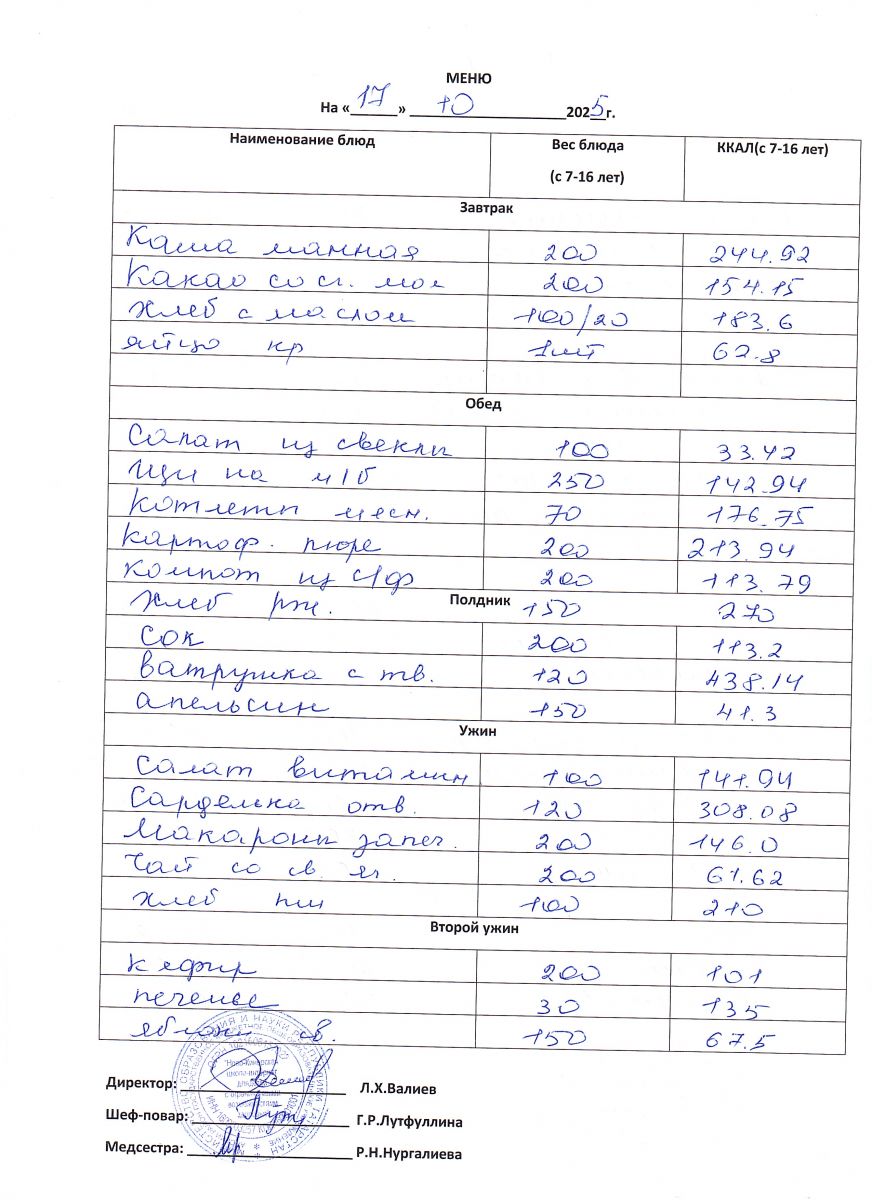 МЕНЮ
На «17» 10 2025г.
Наименование блюд Вес блюда (с 7-16 лет) ККАЛ(с 7-16 лет)
Завтрак
Каша манная 200 244.92
Какао со сг. мол 200 154.15
Хлеб с маслом 100/20 183.6
яйцо кр 1шт 62.8
Обед
Салат из свеклы 100 33.42
Щи на м/б 250 142.94
Котлеты мясн. 70 176.75
Картоф. пюре 200 213.94
Компот из с/ф 200 113.79
Хлеб рж. 150 270
Полдник
Сок 200 113.2
Ватрушка с тв. 120 438.14
апельсин 150 41.3
Ужин
Салат витамин 100 141.94
Сарделька отв. 120 308.08
Макароны запеч. 200 146.0
Чай со св. яг. 200 61.62
Хлеб пш 100 210
Второй ужин
Кефир 200 101
печенье 30 135
яблоки св. 150 67.5
Директор: Л.Х.Валиев
Шеф-повар: Г.Р.Лутфуллина
Медсестра: Р.Н.Нургалиева